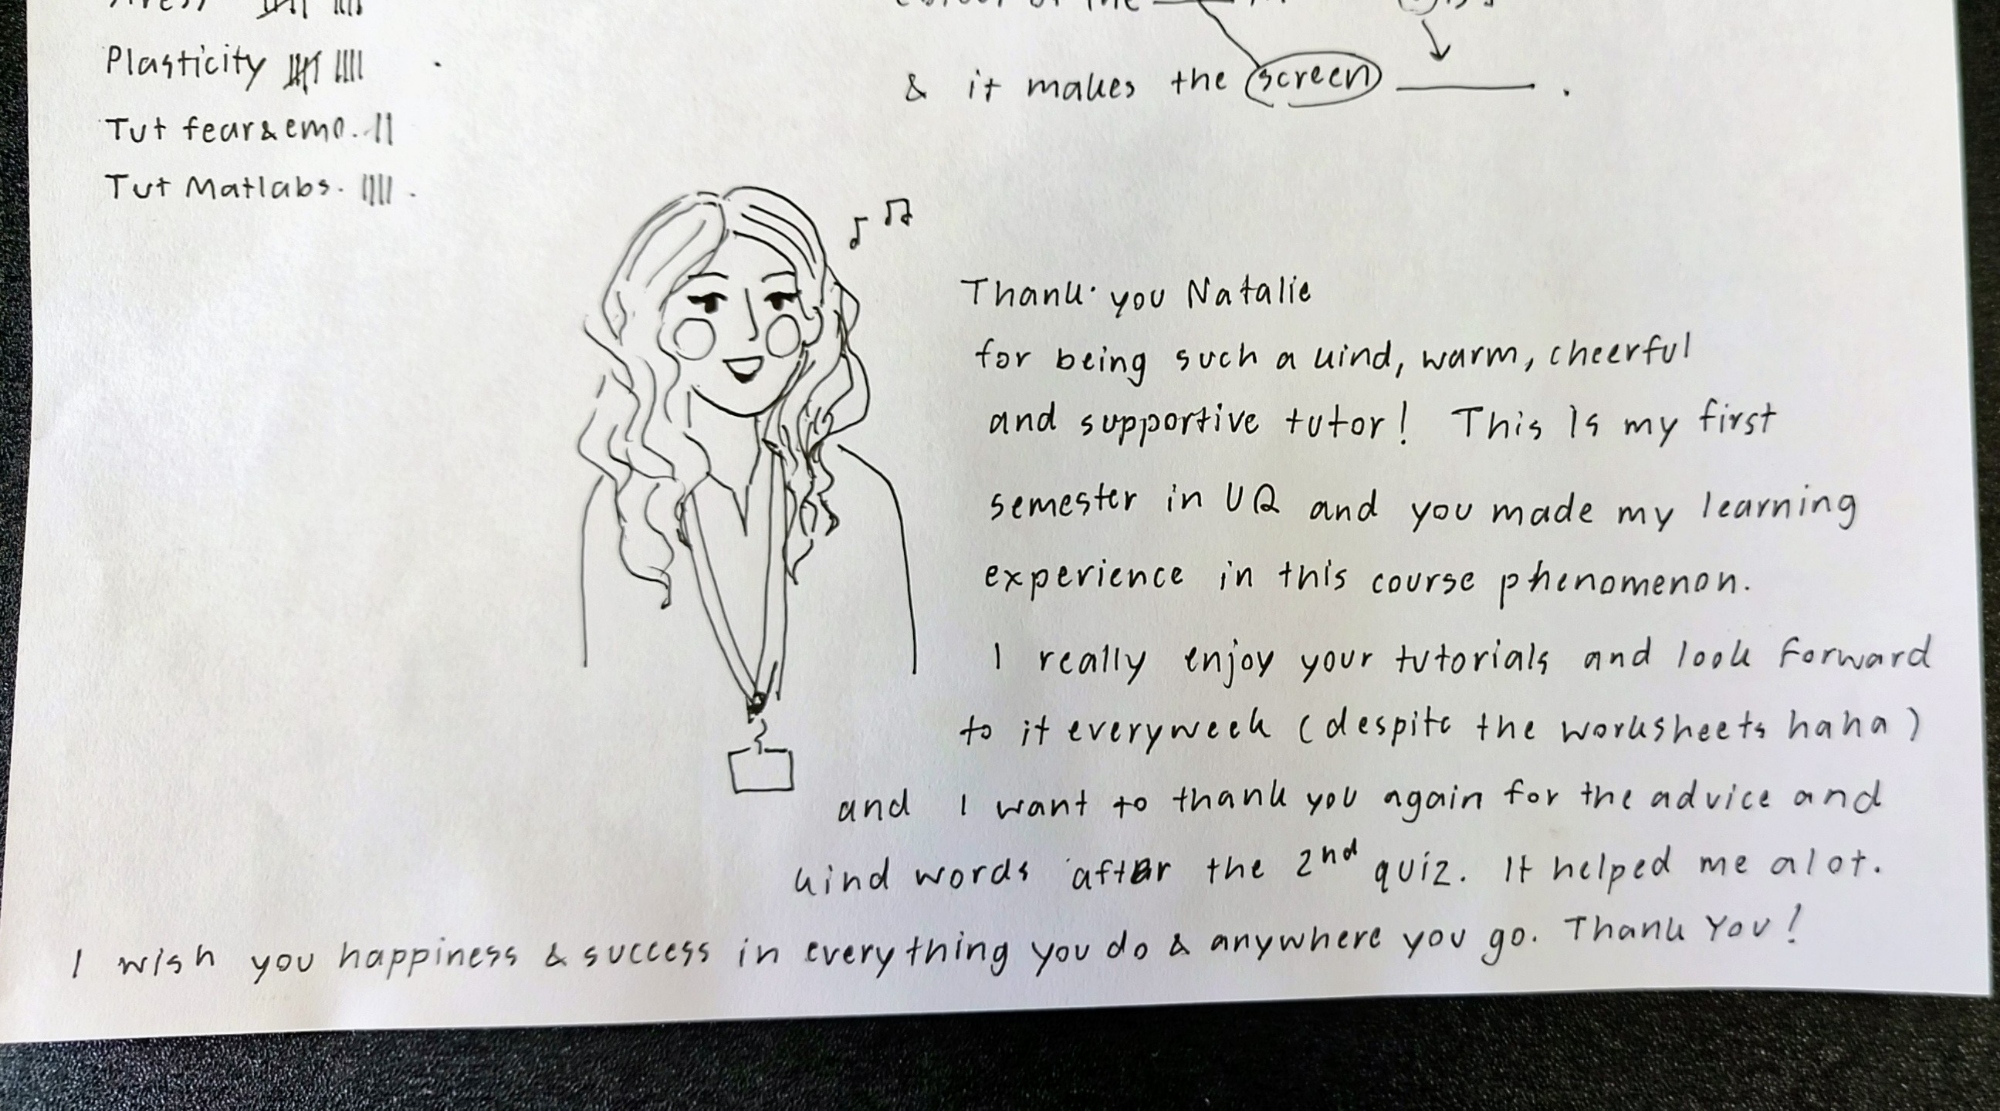 Stress
Plasticity
Tut fear & emo.
Tut Matlabs.
colour of the
& it makes the screen ______ .
Thank you Natalie
for being such a kind, warm, cheerful
and supportive tutor! This is my first
semester in UQ and you made my learning
experience in this course phenomenon.
I really enjoy your tutorials and look forward
to it everyweek (despite the worksheets haha)
and I want to thank you again for the advice and
kind words after the 2nd quiz. It helped me alot.
I wish you happiness & success in everything you do & anywhere you go. Thank You!